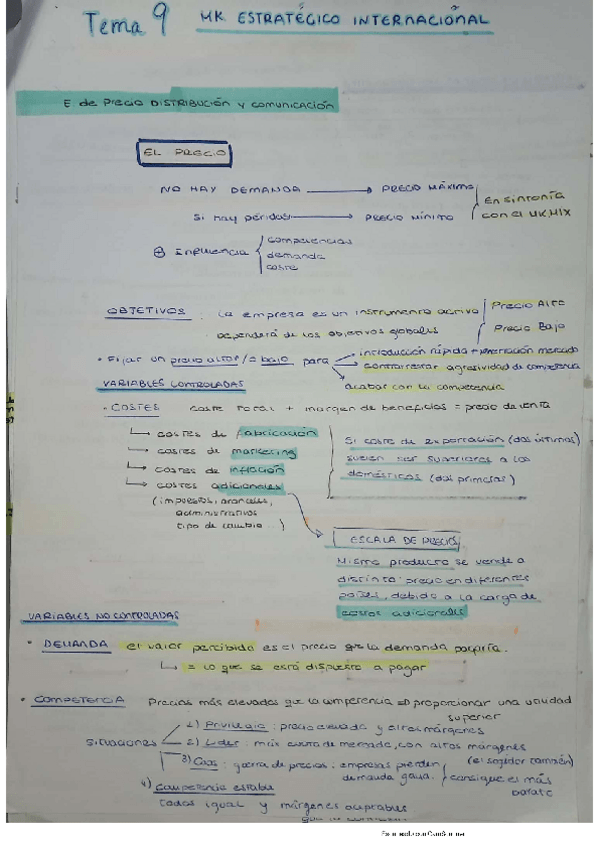 Tema 9 MK ESTRATÉGICO INTERNACIONAL
E de PRECIO DISTRIBUCIÓN Y COMUNICACIÓN
EL PRECIO
NO HAY DEMANDA → PRECIO MÁXIMO
Si hay pérdidas → PRECIO MÍNIMO
En sintonía
con el MK.MIX
⊕ INFLUENCIA
competencias
demanda
coste
OBJETIVOS: La empresa es un instrumento activo
dependerá de los objetivos globales
Precio Alto
Precio Bajo
• Fijar un precio alto/o bajo para
introducción rápida + penetración mercado
contrarrestar agresividad de competencia
acabar con la competencia
VARIABLES CONTROLADAS
• COSTES coste total + margen de beneficios = precio de venta
costes de fabricación
costes de marketing
costes de inflación
costes adicionales
(impuestos, aranceles,
administrativos
tipo de cambio...)
Si coste de exportación (dos últimos)
suelen ser superiores a los
domésticos (dos primeros)
ESCALA DE PRECIOS
Mismo producto se vende a
distinto precio en diferentes
países, debido a la carga de
costes adicionales
VARIABLES NO CONTROLADAS
• DEMANDA el valor percibido es el precio que la demanda pagaría.
= lo que se está dispuesto a pagar
• COMPETENCIA Precios más elevados que la competencia ⇒ proporcionar una calidad
superior
SITUACIONES
1) Privilegio: precio elevado y altos márgenes
2) Líder: más cuota de mercado, con altos márgenes
(el seguidor también)
3) Caos: guerra de precios: empresas pierden
demanda gana.
consigue el más
barato
4) Competencia estable
todos igual y márgenes aceptables